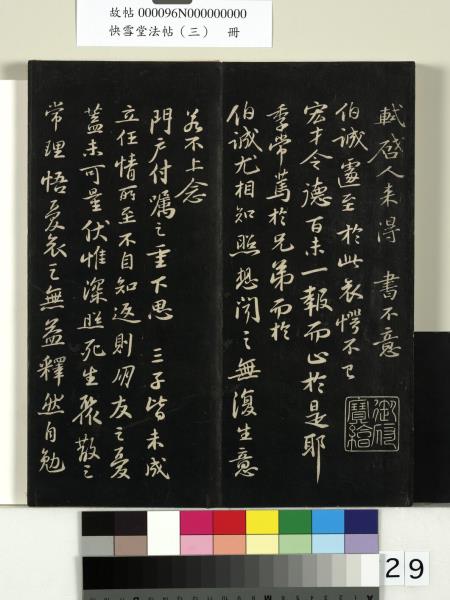 故帖 000096N000000000
快雪堂法帖（三） 冊
軾啓人來得 書不意
伯誠遽至於此哀愕不已
宏才令德百未一報而止於是耶
季常篤於兄弟而於
伯誠尤相知照想聞之無復生意
若不上念
門户付囑之重下思 三子皆未成
立任情所至不自知返則朋友之憂
蓋未可量伏惟深照死生聚散之
常理悟憂哀之無益釋然自勉
29